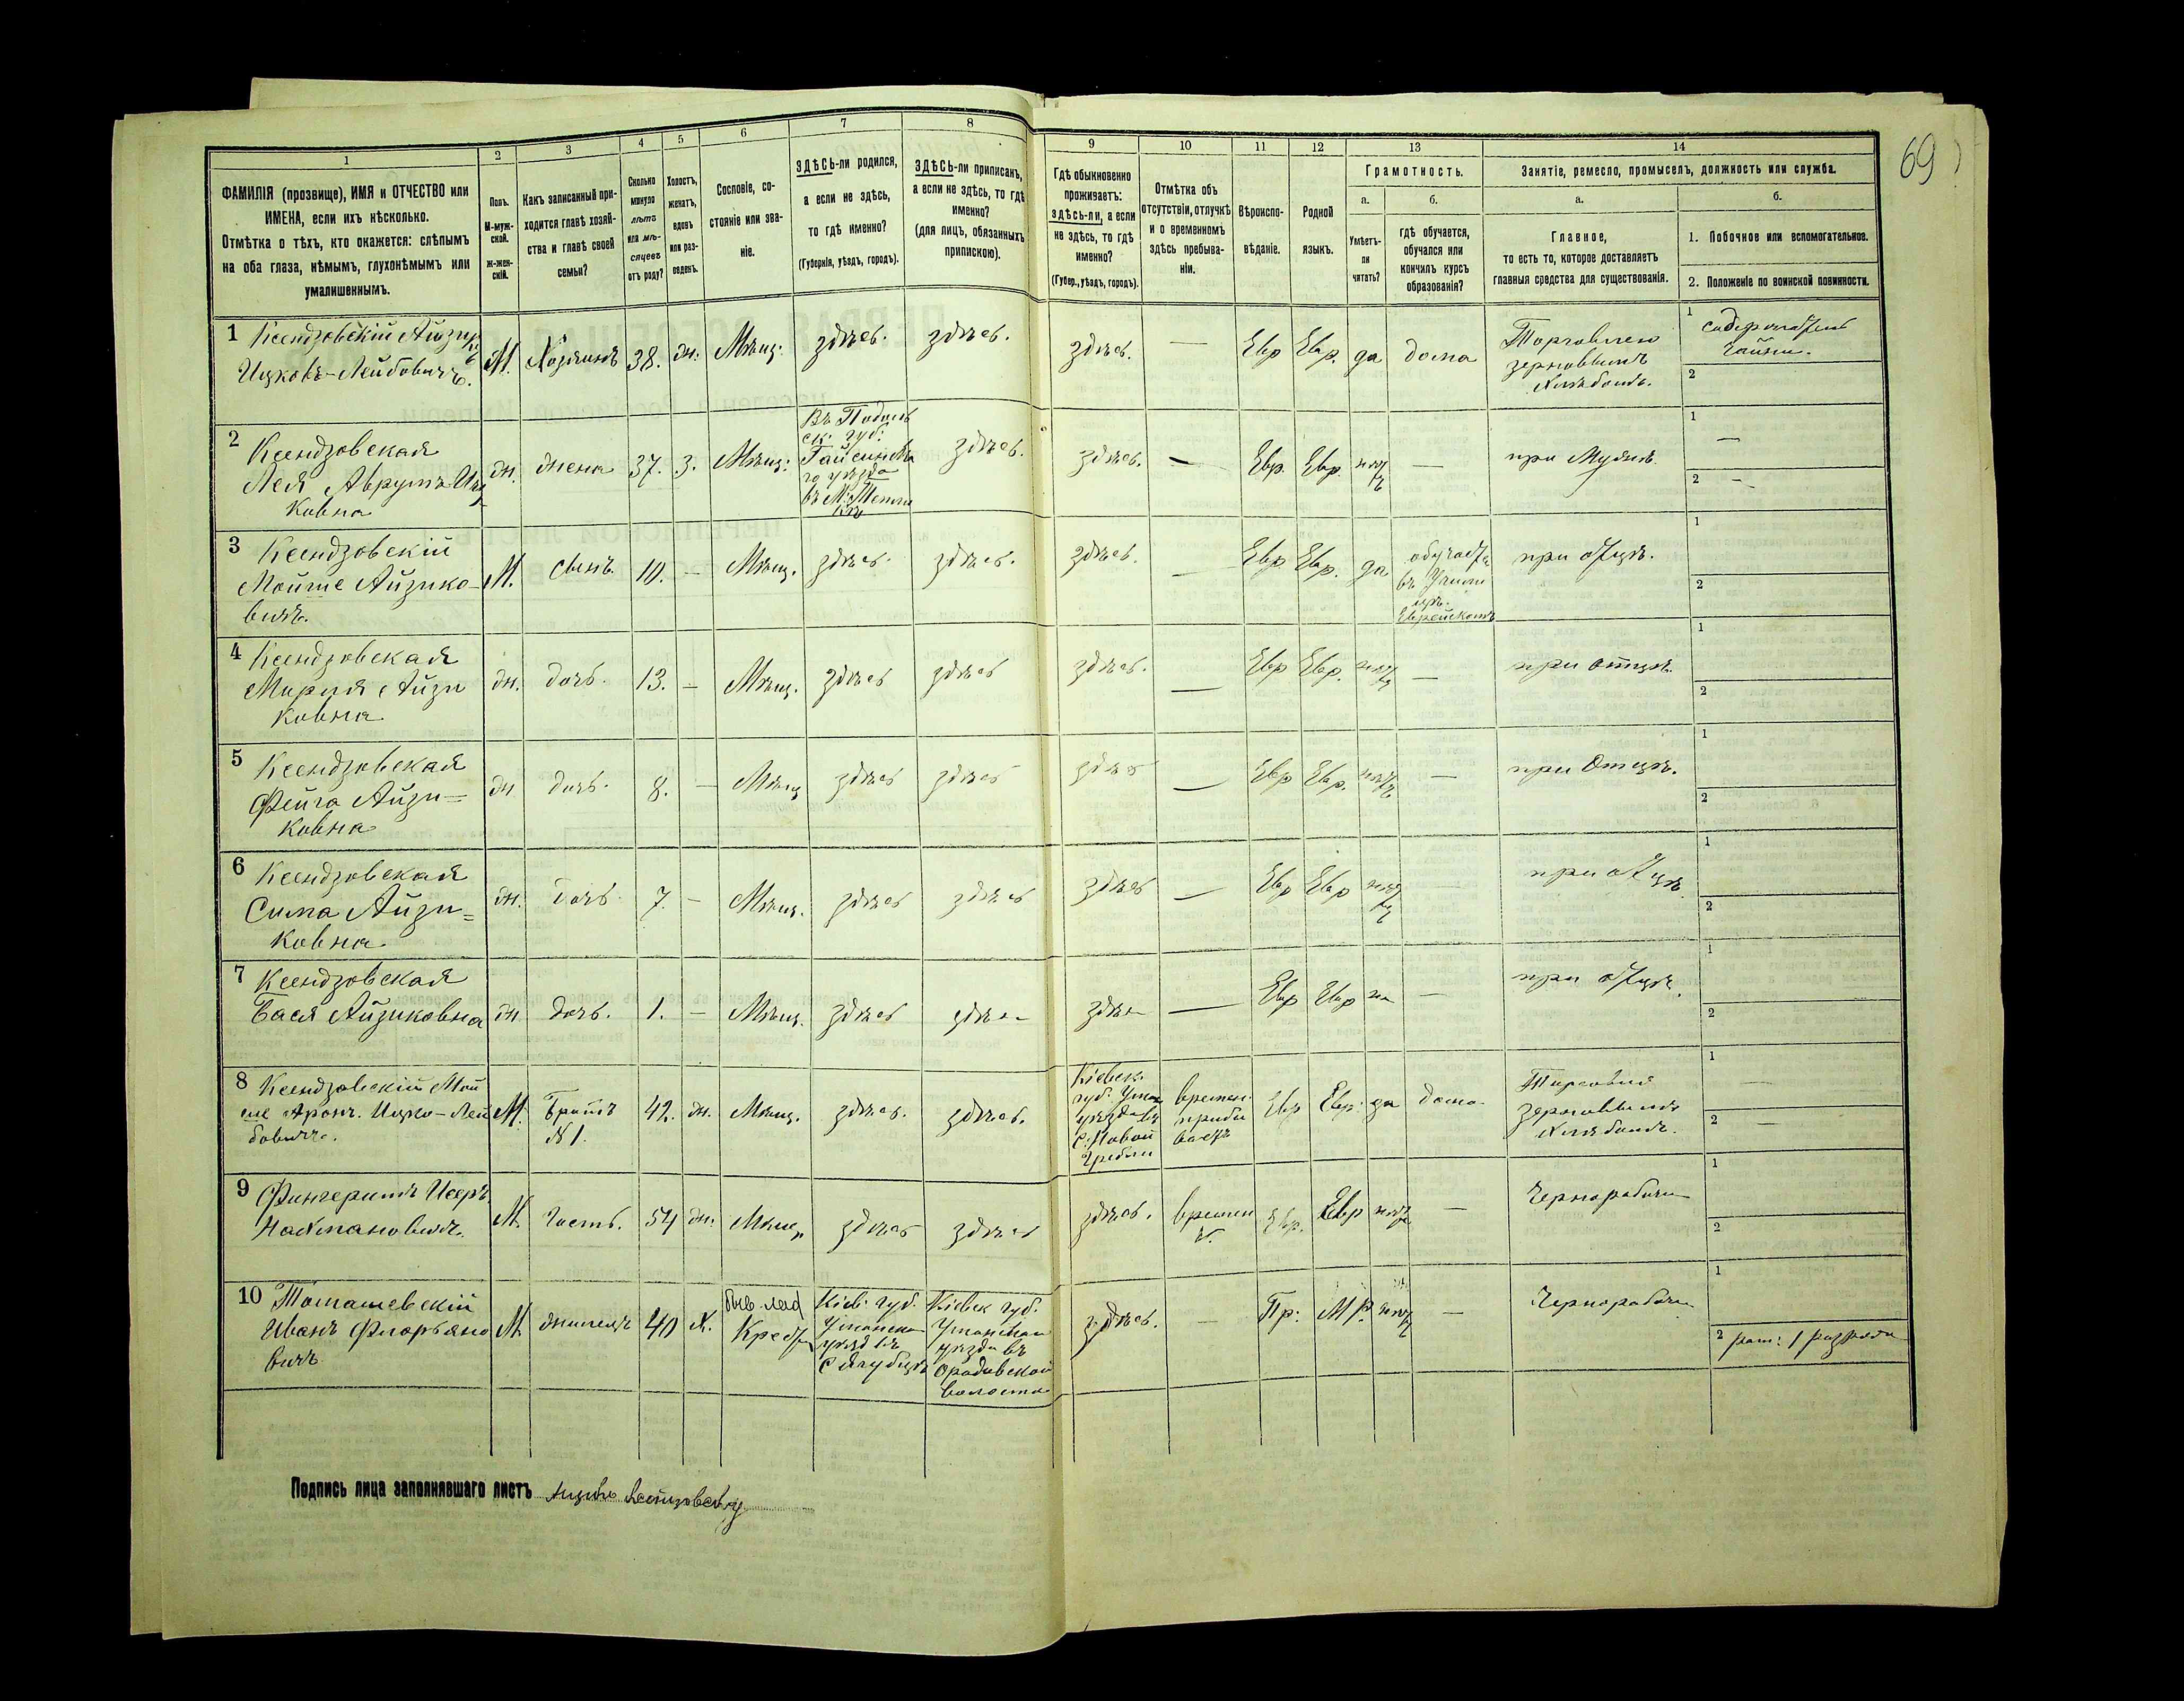 69
1
2
3
4
5
6
7
8
9
10
11
12
13
14
ФАМИЛІЯ (прозвище), ИМЯ и ОТЧЕСТВО или
ИМЕНА, если ихъ нѣсколько.
Отмѣтка о тѣхъ, кто окажется: слѣпымъ
на оба глаза, нѣмымъ, глухонѣмымъ или
умалишеннымъ.
Полъ.
М-муж-
ской.
ж-жен-
скій.
Какъ записанный при-
ходится главѣ хозяй-
ства и главѣ своей
семьи?
Сколько
минуло
лѣтъ
или мѣ-
сяцевъ
отъ роду?
Холостъ,
женатъ,
вдовъ
или раз-
веденъ.
Сословіе, со-
стояніе или зва-
ніе.
ЗДѢСЬ-ли родился,
а если не здѣсь,
то гдѣ именно?
(Губернія, уѣздъ, городъ).
ЗДѢСЬ-ли приписанъ,
а если не здѣсь, то гдѣ
именно?
(для лицъ, обязанныхъ
припискою).
Гдѣ обыкновенно
проживаетъ:
здѣсь-ли, а если
не здѣсь, то гдѣ
именно?
(Губер., уѣздъ, городъ).
Отмѣтка объ
отсутствіи, отлучкѣ
и о временномъ
здѣсь пребыва-
ніи.
Вѣроиспо-
вѣданіе.
Родной
языкъ.
Грамотность.
а.
Умѣетъ-
ли
читать?
б.
гдѣ обучается,
обучался или
кончилъ курсъ
образованія?
Занятіе, ремесло, промыселъ, должность или служба.
а.
Главное,
то есть то, которое доставляетъ
главныя средства для существованія.
б.
1. Побочное или вспомогательное.
2. Положеніе по воинской повинности.
1 Ксендзовскій Айзикъ
Ицковъ-Лейбовичъ.
М. Хозяинъ 38. ж. Мѣщ: здѣсь. здѣсь. здѣсь. — Евр Евр. да дома
Торговлею
зерновымъ
хлѣбомъ.
1 содержатель
чайни.
2
2 Ксендзовская
Лея Аврумъ-Иц
ковна
ж. жена 37. з. Мѣщ:
Въ Подоль
ск. губ.
Гайсинска
го уѣзда
въ М.
здѣсь. здѣсь. — Евр. Евр. нѣтъ — при Мужѣ.
1 —
2 —
3 Ксендзовскій
Мойше Айзико-
вичъ.
М. сынъ 10. — Мѣщ. здѣсь. здѣсь. здѣсь. — Евр Евр. да
обучается
въ Учили
щѣ.
Еврейскомъ
при отцѣ.
1
2
4 Ксендзовская
Мирия Айзи
ковна
ж. дочь. 13. — Мѣщ. здѣсь здѣсь здѣсь. — Евр Евр. нѣтъ — при отцѣ.
1
2
5 Ксендзовская
Фейга Айзи=
ковна
ж дочь. 8. — Мѣщ здѣсь здѣсь здѣсь — Евр Евр. нѣтъ — при Отцѣ.
1
2
6 Ксендзовская
Сима Айзи=
ковна
ж. дочь. 7. — Мѣщ. здѣсь здѣсь здѣсь — Евр Евр нѣтъ — при отцѣ.
1
2
7 Ксендзовская
Бася Айзиковна
ж дочь. 1. — Мѣщ. здѣсь здѣсь здѣсь — Евр Евр — при отцѣ.
1
2
8 Ксендзовскій Мой
ше Аронъ. Ицко-Лей
бовичъ.
М. Братъ
№1.
42. ж. Мѣщ. здѣсь. здѣсь.
Кіевск.
губ. Уман
уѣзда въ
с. Новой
Гребли
времен.
пребы
ваетъ
Евр Евр. да дома
Торговля
зерновымъ
хлѣбомъ.
1 —
2 —
9 Фингеритъ Исеръ
Нахмановичъ.
М. гость. 54 ж. Мѣщ здѣсь здѣсь здѣсь. времен Евр. Евр нѣтъ — Чернорабочи
1
2
10 Томашевскій
Иванъ Флорьяно
вичъ
М жилецъ 40 х.
Крест
Кіев. губ.
Уманска
уѣзд въ
Кіевск губ.
Уманскаго
уѣзда въ
Орадовской
волости
здѣсь. — Пр: МР. нѣтъ — Чернорабочи
1
2 рат: 1 разряда
Подпись лица заполнявшаго листъ